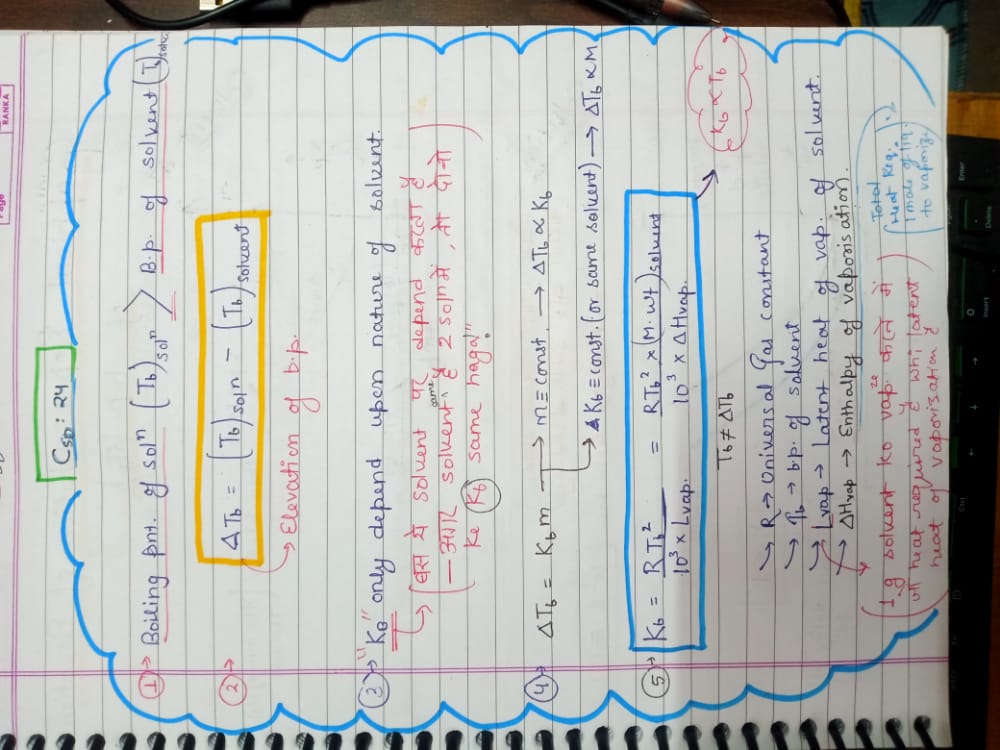 RANKA
CSD : 24
① → Boiling pnt. of solⁿ (Tb)solⁿ > B.p. of solvent (Tb)solv.
② → ΔTb = (Tb)solⁿ − (Tb)solvent
→ Elevation of b.p.
③ → "KB" only depend upon nature of solvent.
→ (बस ये solvent पर depend करता है
— अगर solvent same है 2 solⁿ में, तो दोनो
ke Kb same hoga")
④ → ΔTb = Kb m → m ≡ const. → ΔTb ∝ Kb
→ Kb ≡ const. (or same solvent) → ΔTb ∝ m
⑤ → Kb = RTb² / 10³ × Lvap. = RTb² × (M.wt)solvent / 10³ × ΔHvap.
Kb ∝ Tb
Tb ≠ ΔTb
→ R → Universal Gas constant
→ Tb → b.p. of solvent
→ Lvap → Latent heat of vap. of solvent.
→ ΔHvap → Enthalpy of vaporisation.
(Total heat Req. 1 mole of liq. to vaporize)
(1 g solvent ko vapze करने में
जो heat required है whi latent
heat of vaporisation है)
Enter
Delete
Insert
Ctrl